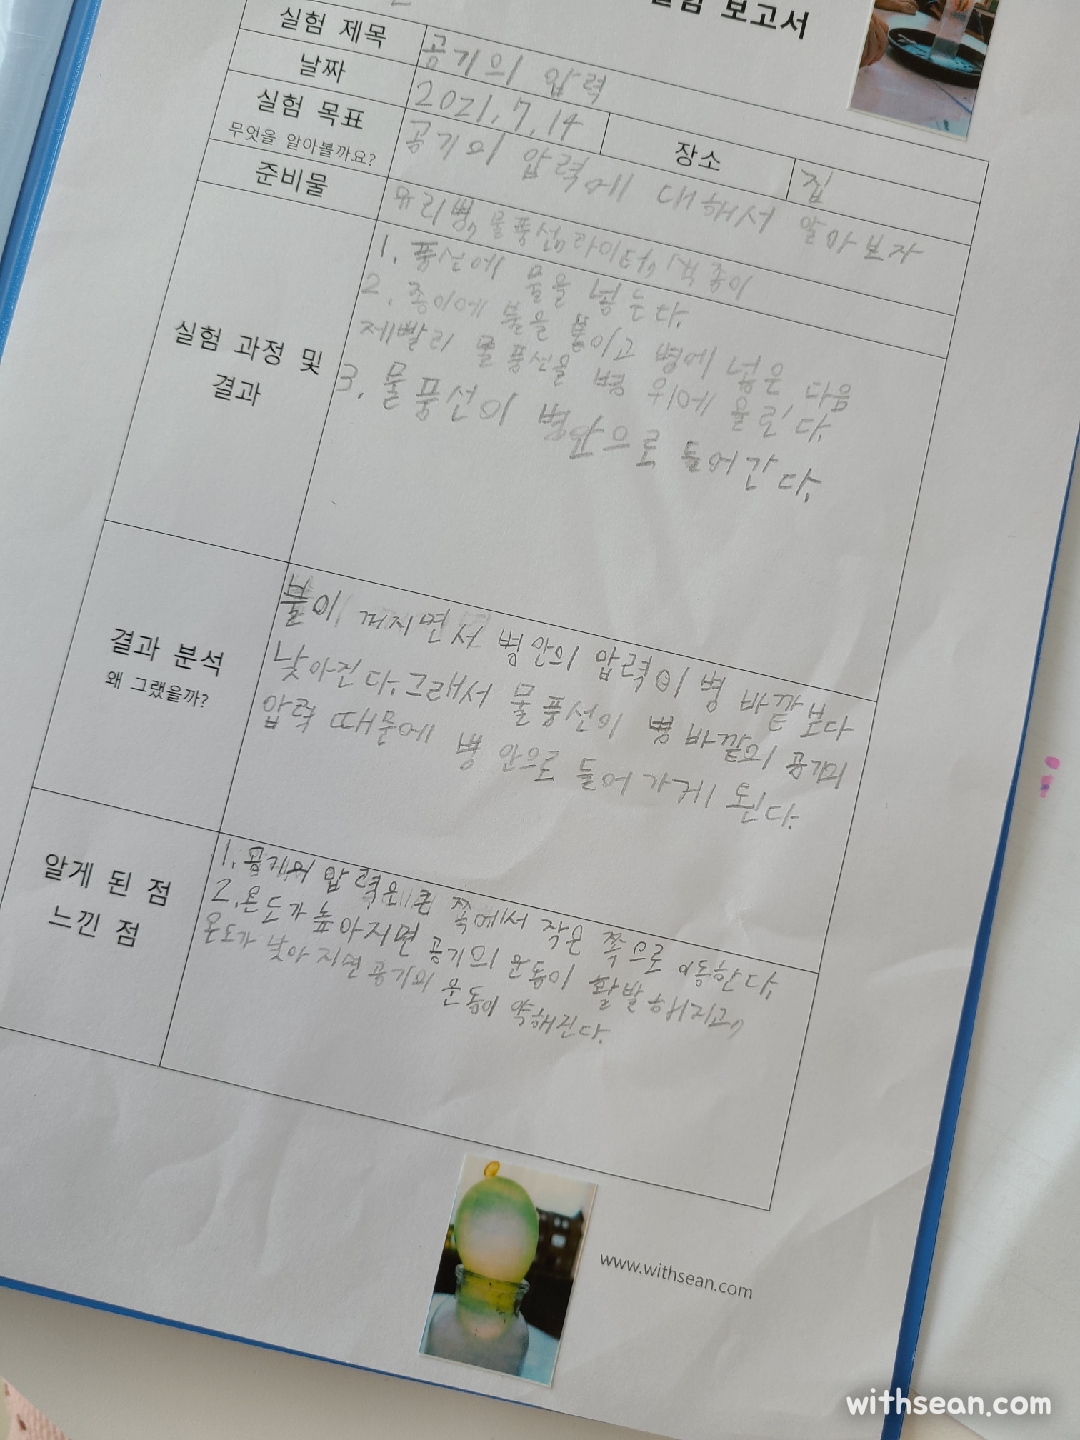 보고서
실험 제목
공기의 압력
날짜
2021.7.14
장소
집
실험 목표
무엇을 알아볼까요?
공기의 압력에 대해서 알아보자
준비물
유리병, 물풍선, 라이터, 종이
실험 과정 및
결과
1. 풍선에 물을 넣는다.
2. 종이에 불을 붙이고 병에 넣은 다음
제빨리 물풍선을 병 위에 올로다.
3. 물풍선이 병안으로 들어간다.
결과 분석
왜 그랬을까?
불이 꺼지면서 병안의 압력이 병 바깥보다
낮아진다. 그래서 물풍선이 병 바깥의 공기의
압력 때물에 병 안으로 들어가게 된다.
알게 된 점
느낀 점
1. 공기의 압력은 큰 쪽에서 작은 쪽으로 이동한다.
2. 온도가 높아지면 공기의 운동이 활발해지고,
온도가 낮아지면 공기의 운동이 약해진다.
www.withsean.com
withsean.com